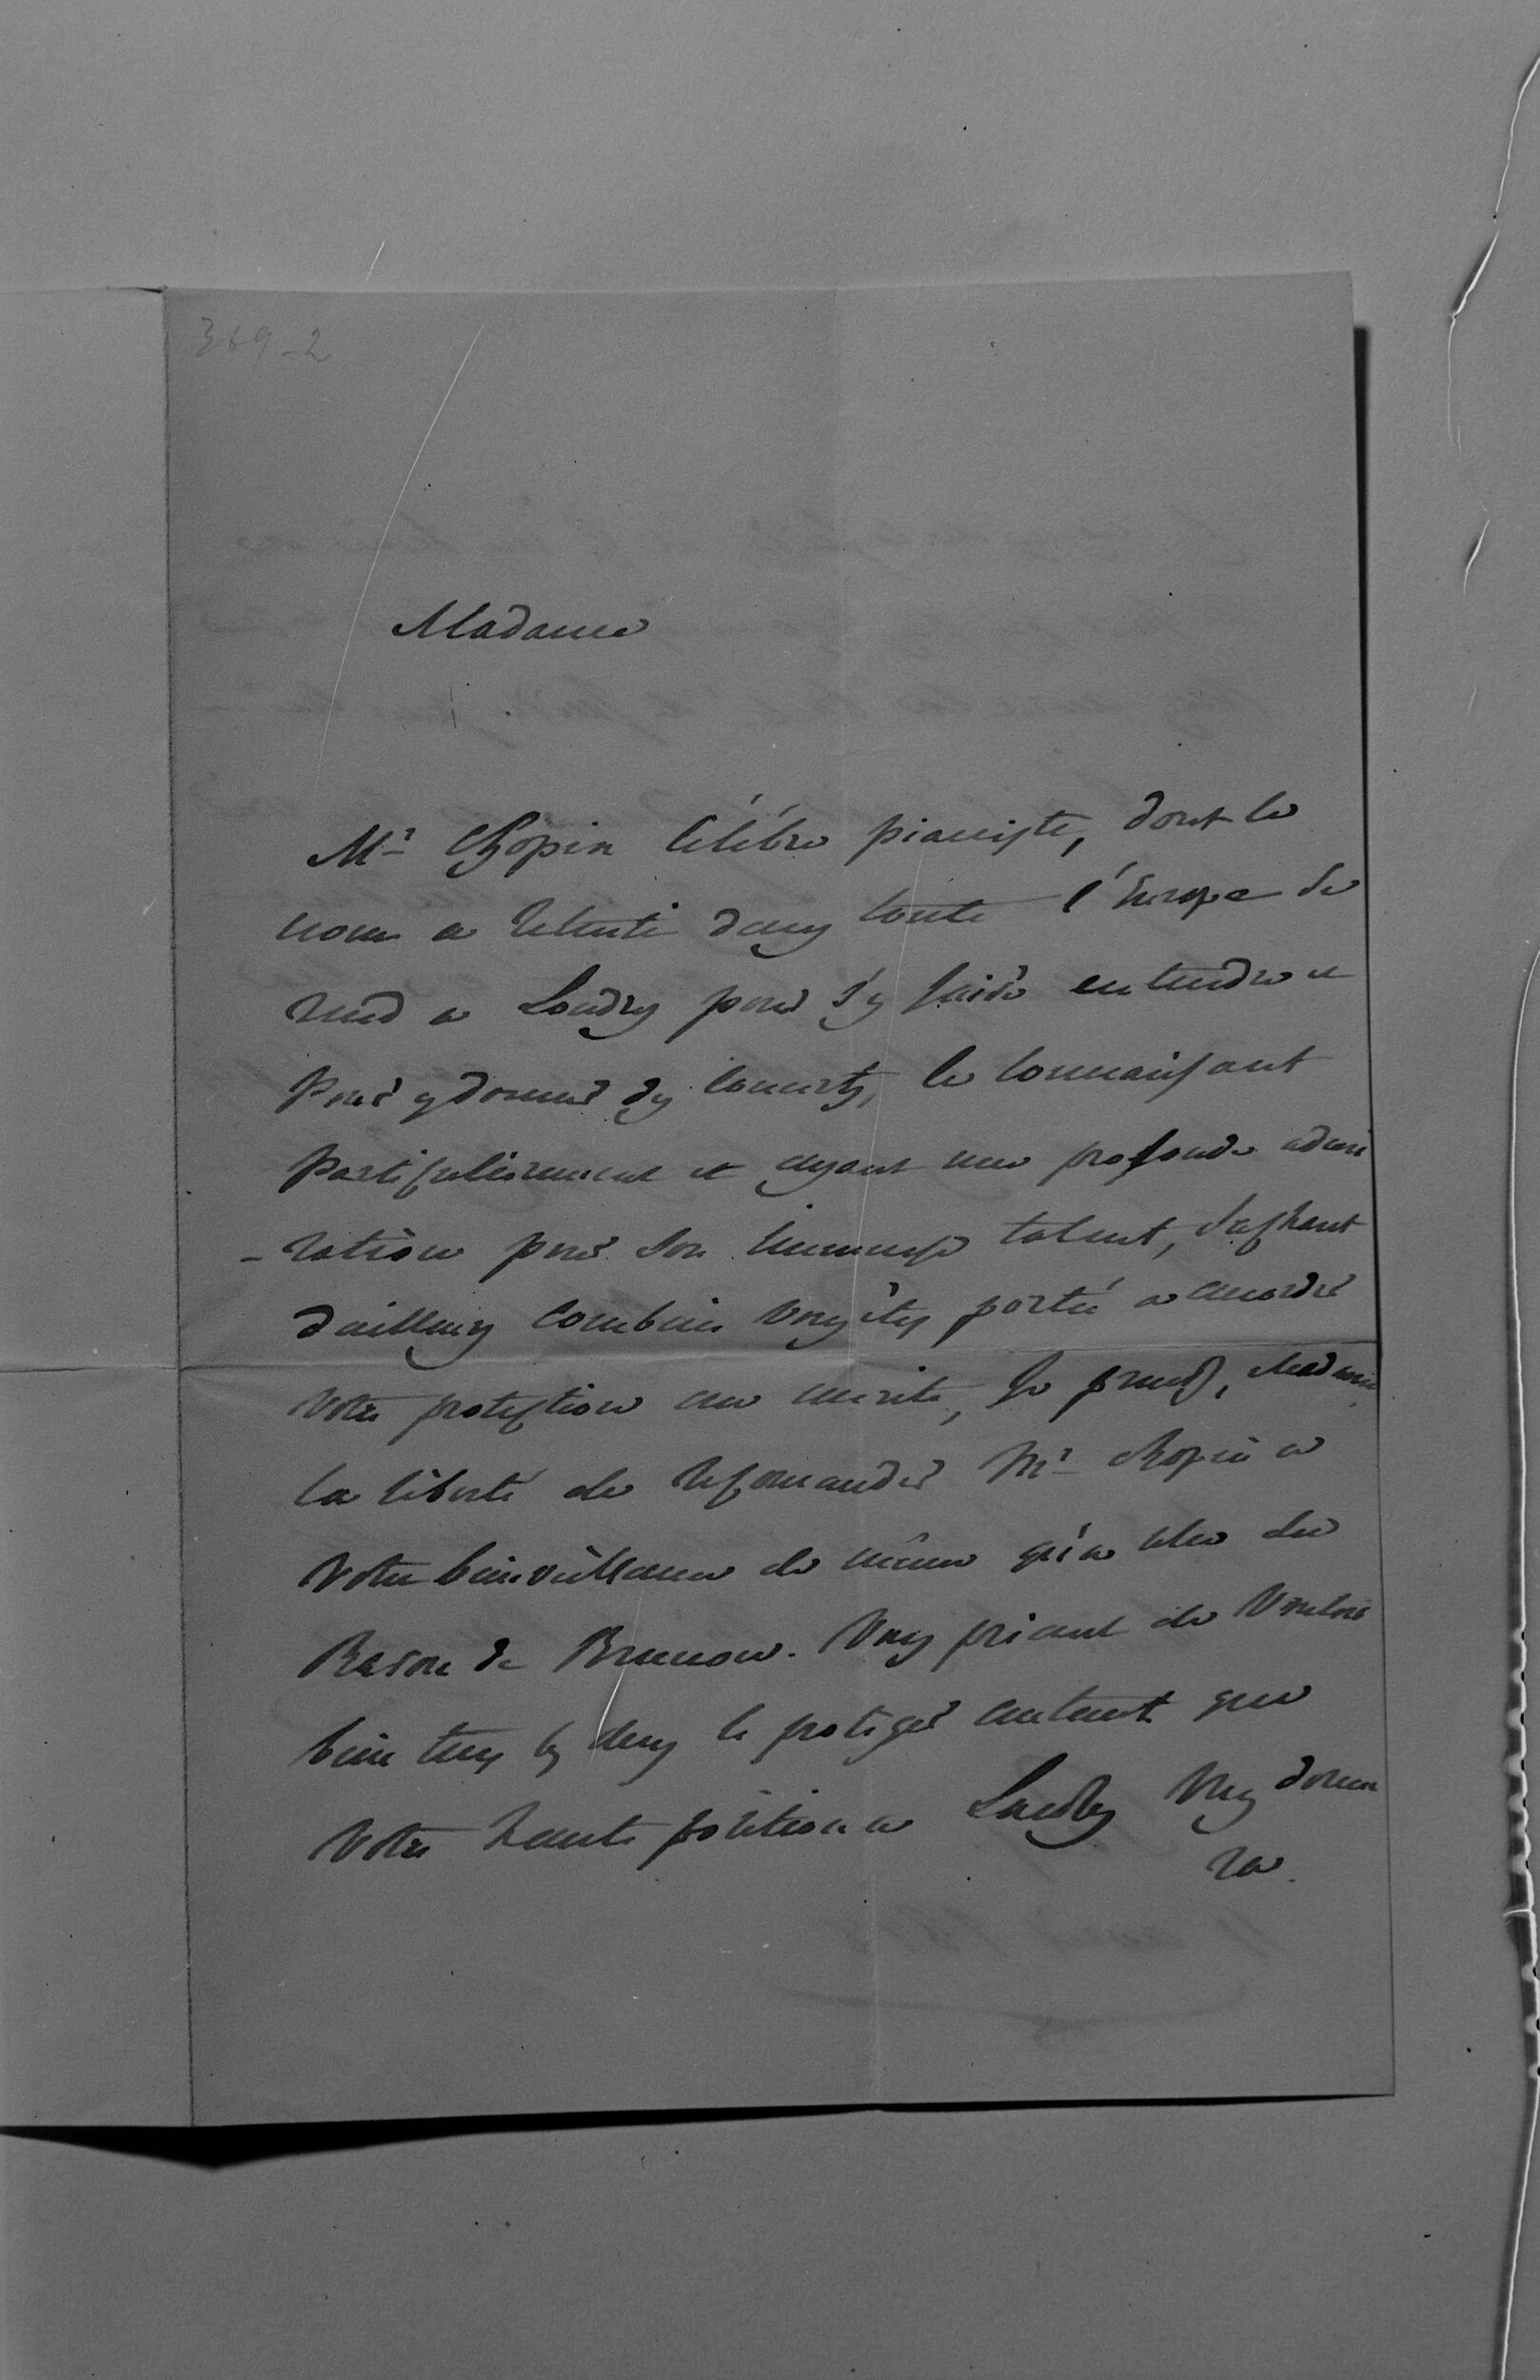 369-2
Madame
Mr Chopin célébre pianiste, dont le
nom a retenti dans toute l'Europe se
rend a Londres pour s'y faire entendre et
pour y donner des concerts, le connaissant
particulièrement et ayant une profonde admi
-ration pour son immense talent, sachant
d'ailleurs combien vous êtes porté a accorder
votre protection au merite, je prends, Madame,
la liberté de recomander Mr Chopin a
votre bienveillance de même qu'a celle du
Baron de Brunow. Vous priant de vouloir
bien tous les deux le protéger autant que
votre haute position a Londres vous donne
ra.